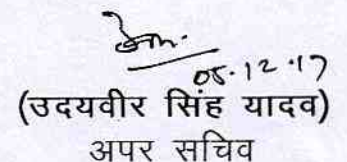 05.12.17
(उदयवीर सिंह यादव)
अपर सचिव